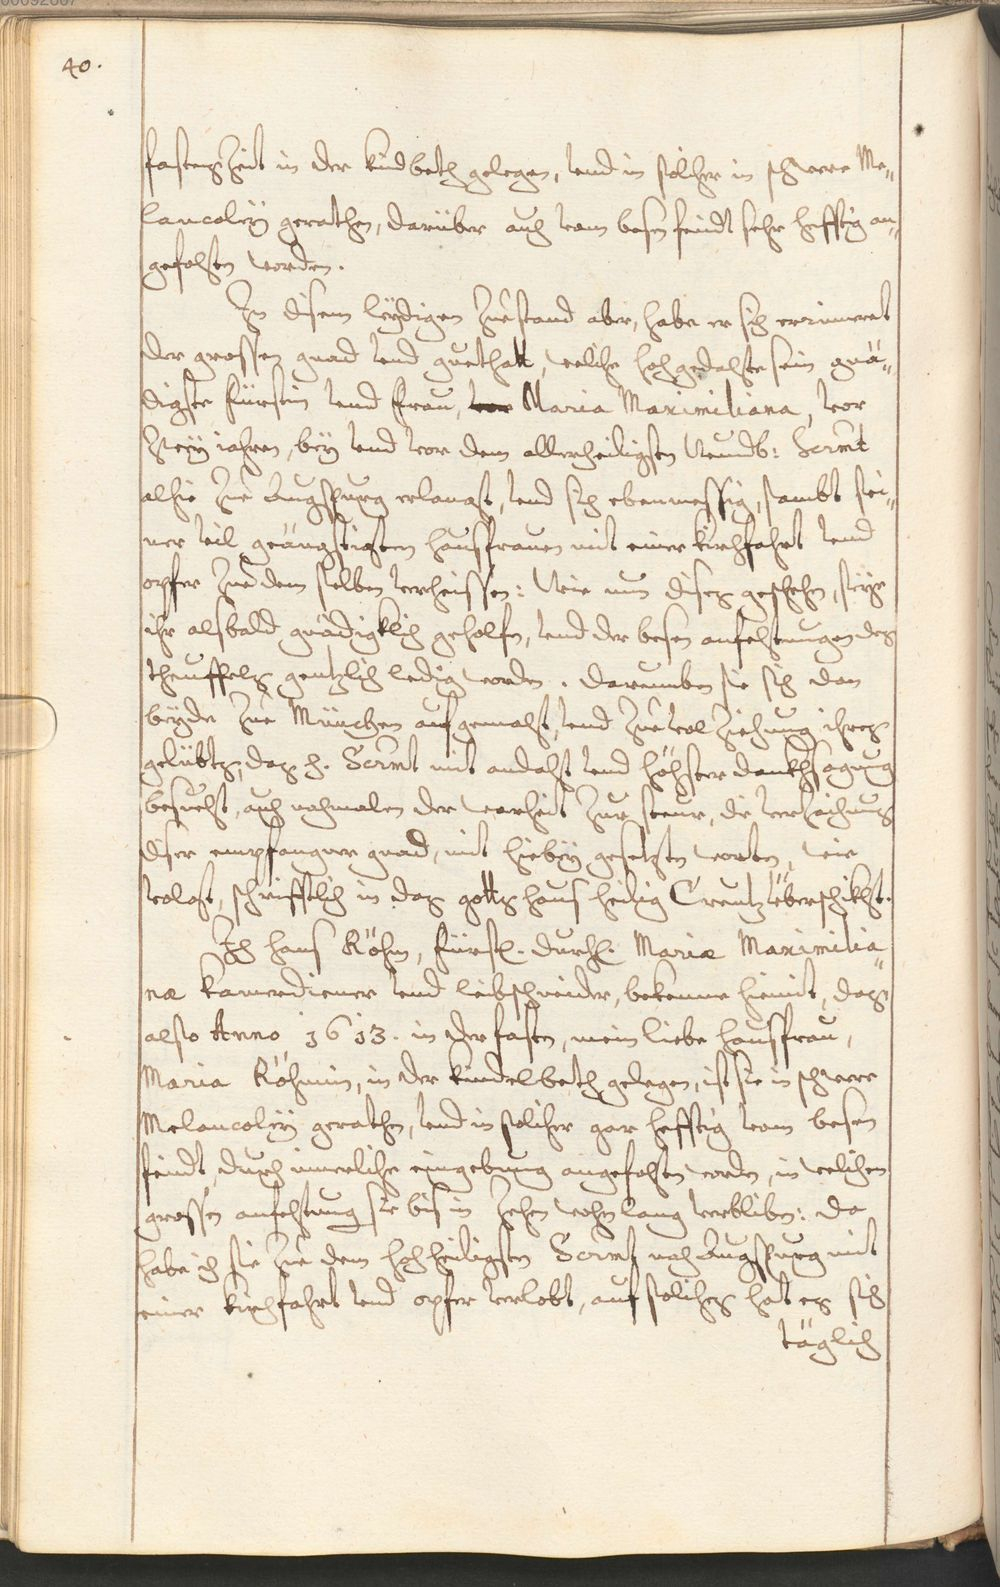 40.
fastenzeit in der kindbeth gelegen, vnd in solcher in schwere Me„
lancoleÿ gerathen, darüber auch vom bösen feindt sehr hefftig an„
gefohten worden.
In disem leÿdigen Zuestand aber, habe er sich erinneret
der grossen gnad vnd guethatt, welche hochgedachte sein gnä„
digste Fürstin vnd Frau, Maria Maximiliana, vor
zweÿ iahren, beÿ vnd vor dem allerheiligsten Wundb: Scrmt
alhie zue Augspurg erlangt, vnd sich ebenmessig, sambt sei„
ner vil geängstigten hausfrauen mit einer kirchfahrt vnd
opfer zue dem selben verheissen: Wie nun dises geschehen, seÿe
ihr alsbald gnädigklich geholfen, vnd der bösen anfehtungen des
theuffels gentzlich ledig worden. Darumben sie sich dan
beÿde zue München aufgemacht, vnd zue volziehung ihres
gelübts, das h. Scrmt mit andaht vnd höhster danckhsagung
besuecht, auch nahmalen der warheit zur steur, die verzaichnus
diser empfangner gnad, mit hiebeÿ gesetzten worten, wie
volgt, schrifftlich in das gottshaus heilig Creutz überschikht.
Ich Hans Röhm, Fürstl. Durchl. Mariæ Maximilia„
næ kamerdiener vnd leibschneider, bekenne hiemit, das
also Anno 1613. in der fasten, mein liebe hausfrau,
Maria Röhmin, in der kindelbeth gelegen, ist sie in schwere
Melancoleÿ gerathen, vnd in solcher gar hefftig vom bösen
feindt, durch innerliche eingebung angefohten worden, in welchen
grossen anfehtung sie bis in zehen wohen lang verbliben: da
habe ich sie zue dem hochheiligsten Scrmt nah Augspurg mit
einer kirchfahrt vnd opfer verlobt, auf solches hat es sich
täglich